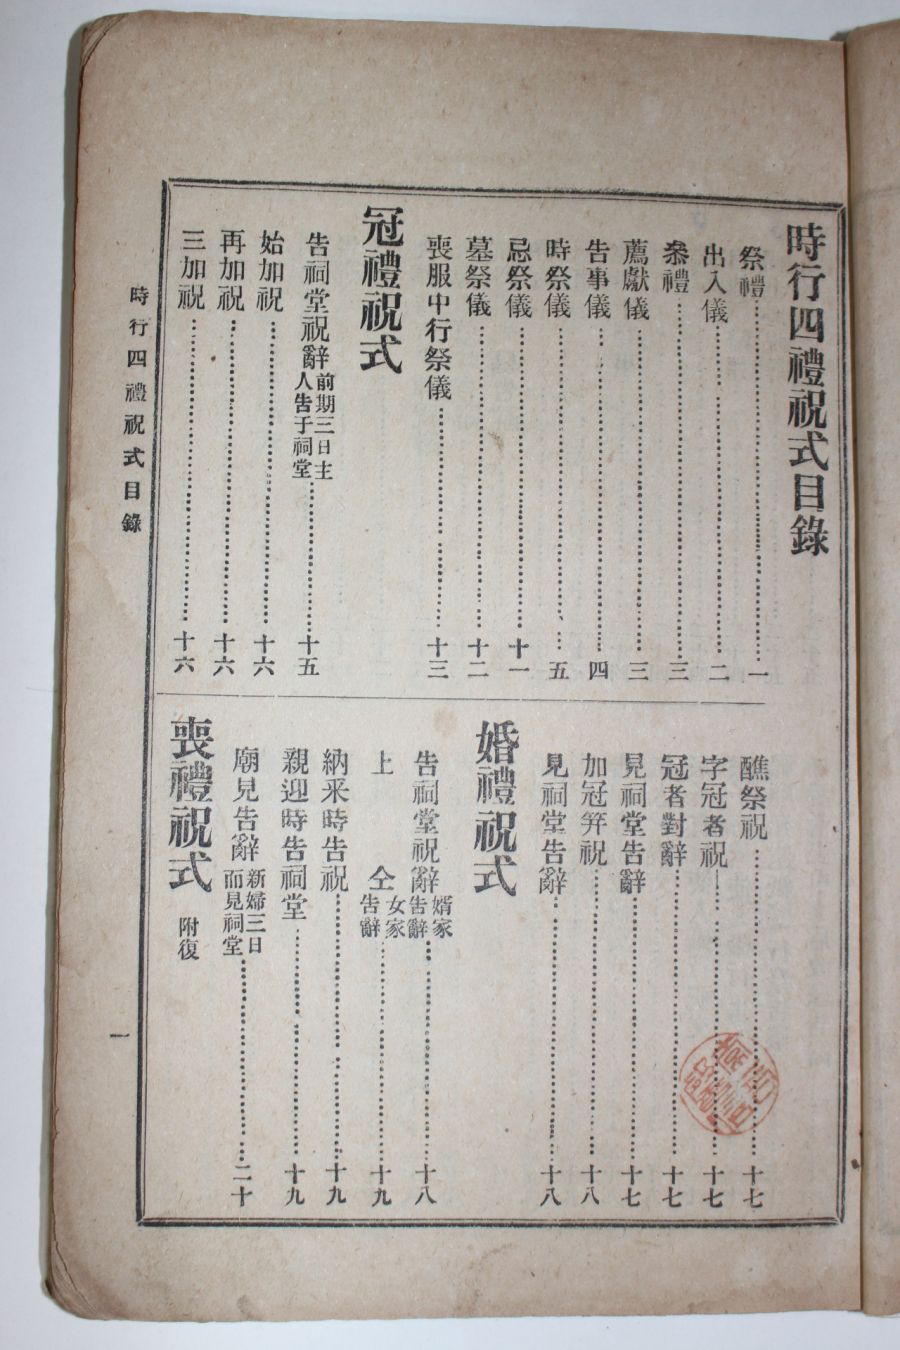 時行四禮祝式目錄
祭禮……一
出入儀……二
叅禮……三
薦獻儀……三
告事儀……四
時祭儀……五
忌祭儀……十一
墓祭儀……十二
喪服中行祭儀……十三
冠禮祝式
告祠堂祝辭 前期三日主人告于祠堂……十五
始加祝……十六
再加祝……十六
三加祝……十六
醮祭祝……十七
字冠者祝……十七
冠者對辭……十七
見祠堂告辭……十七
加冠笄祝……十八
見祠堂告辭……十八
婚禮祝式
告祠堂祝辭 婿家告辭……十八
上仝 女家告辭……十九
納采時告祝……十九
親迎時告祠堂……十九
廟見告辭 新婦三日而見祠堂……二十
喪禮祝式 附復
時行四禮祝式目錄
一